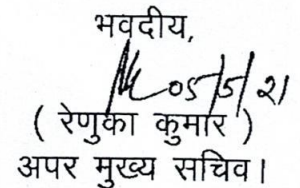 भवदीय,
05/5/21
( रेणुका कुमार )
अपर मुख्य सचिव।